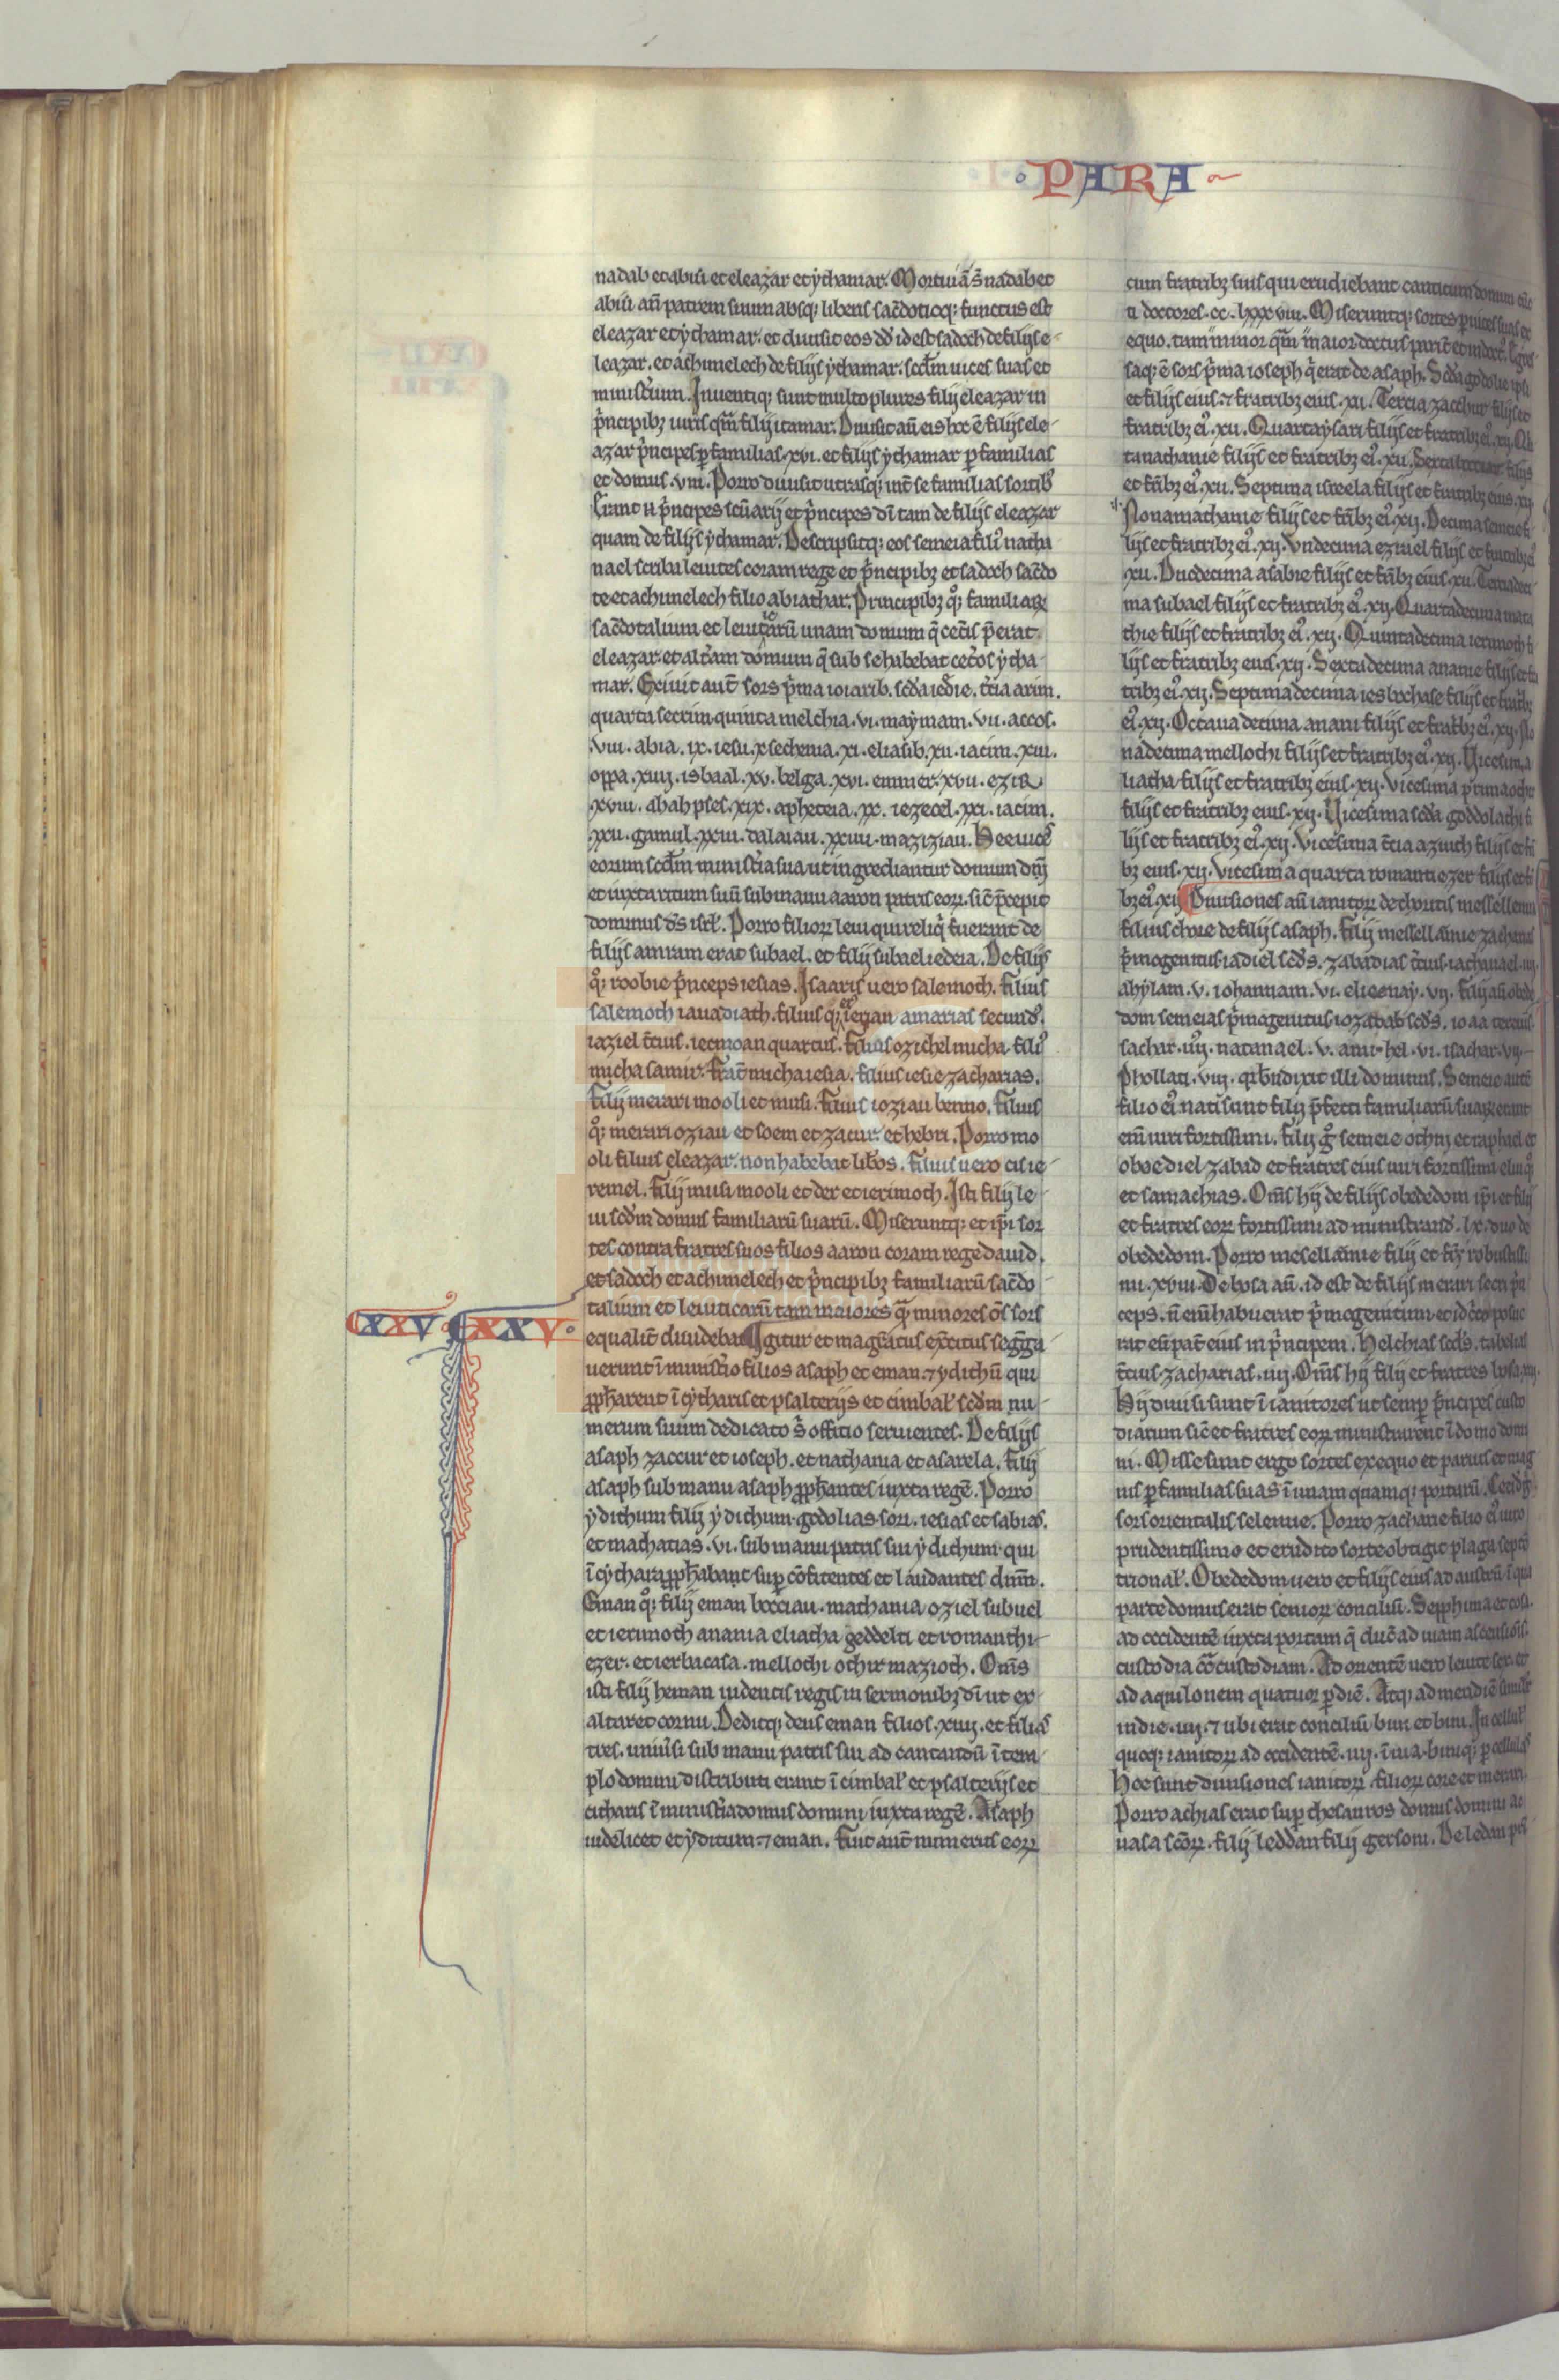 PARA
nadab et abiu et eleazar et ychamar. Mortui ā s̄ nadab et
abiu an̄ patrem suum absq; liberis sac̄doticq; functus est
eleazar et ychamar. et diuisit eos dd̄ id est sadoch de filijs e-
leazar. et achimelech de filijs ychamar. scd̄m uices suas et
minist̄ium. Inuentiq; sunt multo plures filij eleazar in
p̄ncipibz uiris qm̄ filij itamar. Diuisit aū eis hoc ē filijs ele-
azar p̄ncipes ꝑ familias .xvi. et filijs ychamar ꝑ familias
et domus .viii. Porro diuisit utrasq; int̄ se familias sortibꝰ
Erant n̄ p̄ncipes sc̄uarij et p̄ncipes dī tam de filijs eleazar
quam de filijs ychamar. Descripsitq; eos semeia filiꝰ natha
nael scriba leuites coram rege et p̄ncipibz et sadoch sac̄do
te et achimelech filio abiathar. Principibz qꝫ familiaꝝ
sac̄dotalium et leuiticarū unam domum q̄ cet̄is p̄erat
eleazar. et alt̄am domum q̄ sub se habebat cet̄os ycha-
mar. Exiuit aut̄ sors p̄ma ioiarib. scd̄a iedie. t̄cia arim.
quarta seorim quinta melchia .vi. maymam .vii. accos.
.viii. abia .ix. iesu .x. sechenia .xi. eliasib .xii. iacim .xiii.
oppa .xiiij. isbaal .xv. belga .xvi. emmer .xvii. ezir
.xviii. ahab pses .xix. apheteia .xx. iezecel .xxi. iacim.
.xxii. gamul .xxiii. dalaiau .xxiiii. maziziau. Hee uices
eorum scd̄m minist̄ia sua ut ingrediantur domum dn̄j
et iuxta ritum suū sub manu aaron patris eoꝝ. sic̄ p̄cepit
dominus ds̄ isrl̄. Porro filioꝝ leui qui reliq̄ fuerant de
filijs amram erat subael. et filij subael iedeia. De filijs
qꝫ roobie p̄nceps iesias. Isaaris uero salemoch. filius
salemoch iauadiath. filius qꝫ ieriau amarias secundꝰ.
iaziel t̄cius. iecmoan quartus. filius ozichel micha. filiꝰ
micha samir. frat̄ micha iesia. filius iesie zacharias.
filij merari mooli et musi. filius ioziau benno. filius
qꝫ merari oziau et soem et zacur. et hebri. Porro mo
oli filius eleazar. non habebat libos. filius uero cis ie-
remel. filij musi mooli et der et ierimoch. Isti filij le
ui scd̄m domus familiarū suarū. Miseruntq; et ip̄i sor
tes contra fratres suos filios aaron coram rege dauid.
et sadoch et achimelech et p̄ncipibz familiarū sac̄do
talium et leuiticarū tam maiores qm̄ minores om̄s sors
CXXV CXXV.
equalit̄ diuidebat. Igitur et magr̄atus exercitus segga
uerunt ī minist̄io filios asaph et eman. ⁊ ydithū qui
ꝓpharent ī cytharis et psalterijs et cimbal̄ scd̄m nu
merum suum dedicato s̄ officio seruientes. De filijs
asaph zaccur et ioseph. et nathania et asarela. filij
asaph sub manu asaph ꝓphantes iuxta regē. Porro
ydithum filij ydithum. godolias. sori. iesias et sabias.
et machatias .vi. sub manu patris sui ydithum. qui
ī cythara ꝓphabant sup̄ cōfitentes et laudantes dnm̄.
Eman qꝫ filij eman bocciau. machania oziel subuel
et ierimoch anania eliacha geddelti et romanthi-
ezer. et ierbacasa. mellochi ochir mazioch. Om̄s
isti filij heman uidentis regis in sermonibz dī ut ex
altaret cornu. Deditq; deus eman filios .xiiij. et filias
tres. uniusi sub manu patris sui ad cantandū ī tem
plo domini distributi erant ī cimbal̄ et psalterijs et
citharis ī minist̄ia domus domini iuxta regē. Asaph
uidelicet et yditum. ⁊ eman. fuit aut̄ numerus eoꝝ
cum fratribz suis qui erudiebant canticum domini
ti doctores .cc. lxxx viii. Miseruntq; sortes ꝑ uices suas ex
equo. tam minor qm̄ maior doctus parit̄ et indoctꝰ.
saq; ē sors p̄ma ioseph q̄ erat de asaph. Scd̄a godolie ipsi
et filijs eius. ⁊ fratribz eius .xii. Tercia zacchur filijs et
fratribz eiꝰ .xii. Quarta ysari filijs et fratribz eiꝰ .xij.
ta nachanie filijs et fratribz eiꝰ .xii. Sexta filijs
et fr̄ibz eiꝰ .xii. Septima isreela filijs et fratribz eius .xij
Nona mathanie filijs et fr̄ibz eiꝰ .xij. Decima semeie fi
lijs et fratribz eiꝰ .xij. Undecima ezriel filijs et fratribz eiꝰ
.xii. Duodecima asabie filijs et fr̄ibz eius .xii. Terciadeci
ma subael filijs et fratribz eiꝰ .xij. Quartadecima mata
thie filijs et fratribz eiꝰ .xij. Quintadecima ierimoch fi
lijs et fratribz eius .xij. Sextadecima ananie filijs et fra
tribz eiꝰ .xij. Septimadecima iesbochase filijs et fratribz
eiꝰ .xij. Octauadecima anani filijs et fratribz eiꝰ .xij. No
nadecima mellochi filijs et fratribz eiꝰ .xij. Uicesima
liatha filijs et fratribz eius .xij. Vicesima prima ochir
filijs et fratribz eius .xij. Uicesima scd̄a goddolachi fi
lijs et fratribz eiꝰ .xij. Vicesima t̄cia azuich filijs et fr̄i
bz eius .xij. Vicesima quarta romantiezer filijs et fr̄i
bz eiꝰ .xij Diuisiones aū ianitoꝝ de choritis messellemia
filius chore de filijs asaph. filij messellamie zacharias
p̄mogenitus. iadiel scd̄s. zabadias t̄cius. iachanael .iiij.
ahylam .v. iohannam .vi. elieenay .vij. filij aū obede
dom semeias p̄mogenitus. iozabab scd̄s. ioaa tercius.
sachar .iiij. natanael .v. ami-hel .vi. isachar .vij.
Phollati .viij. qr̄ bn̄dixit illi dominus. Semeie autē
filio eiꝰ nati sunt filij p̄fecti familiarū suaꝝ erant
em̄ uiri fortissimi. filij g̊ semeie othnj et raphael et
obediel zabad et fratres eius uiri fortissimi eliuqꝫ
et samachias. Om̄s hij de filijs obededom ip̄i et filij
et fratres eoꝝ fortissimi ad ministrand̄ .lx. duo de
obededom. Porro mesellamie filij et fr̄s robustissi
mi .xviii. De hosa aū. id est de filijs merari secri p̄n
ceps. n̄ em̄ habuerat p̄mogenitum. et idcirco posue
rat eū pat̄ eius in p̄ncipem. Helchias scd̄s. tabelias
t̄cius. zacharias .iiij. Om̄s hij filij et fratres hosa .xiij.
Hij diuisi sunt ī ianitores ut semꝑ p̄ncipes custo
diarum sic̄ et fratres eoꝝ ministrarent ī domo domi
ni. Misse sunt ergo sortes ex equo et paruis et mag
nis ꝑ familias suas ī unam quamq; portarū. Cecidit g̊
sors orientalis selemie. Porro zacharie filio eiꝰ uiro
prudentissimo et erudito sorte obtigit plaga septē
trional̄. Obededom uero et filijs eius ad austrū ī qua
parte domus erat senioꝝ conciliū. Sepphima et hosa.
ad occidentē iuxta portam q̄ duc̄ ad uiam ascensiōis.
custodia cōt̄ custodiam. Ad orientē uero leuite sex. et
ad aquilonem quatuor ꝑ diē. Atq; ad meridiē similr̄
in die .iiij. ⁊ ubi erat conciliū bini et bini. In cellul̄
quoq; ianitoꝝ ad occidentē .iiij. ī uia. biniq; ꝑ cellulas
Hee sunt diuisiones ianitoꝝ. filioꝝ core et merari.
Porro achias erat suꝑ thesauros domus domini ac
uasa sc̄oꝝ. filij leddan filij gersoni. De ledan